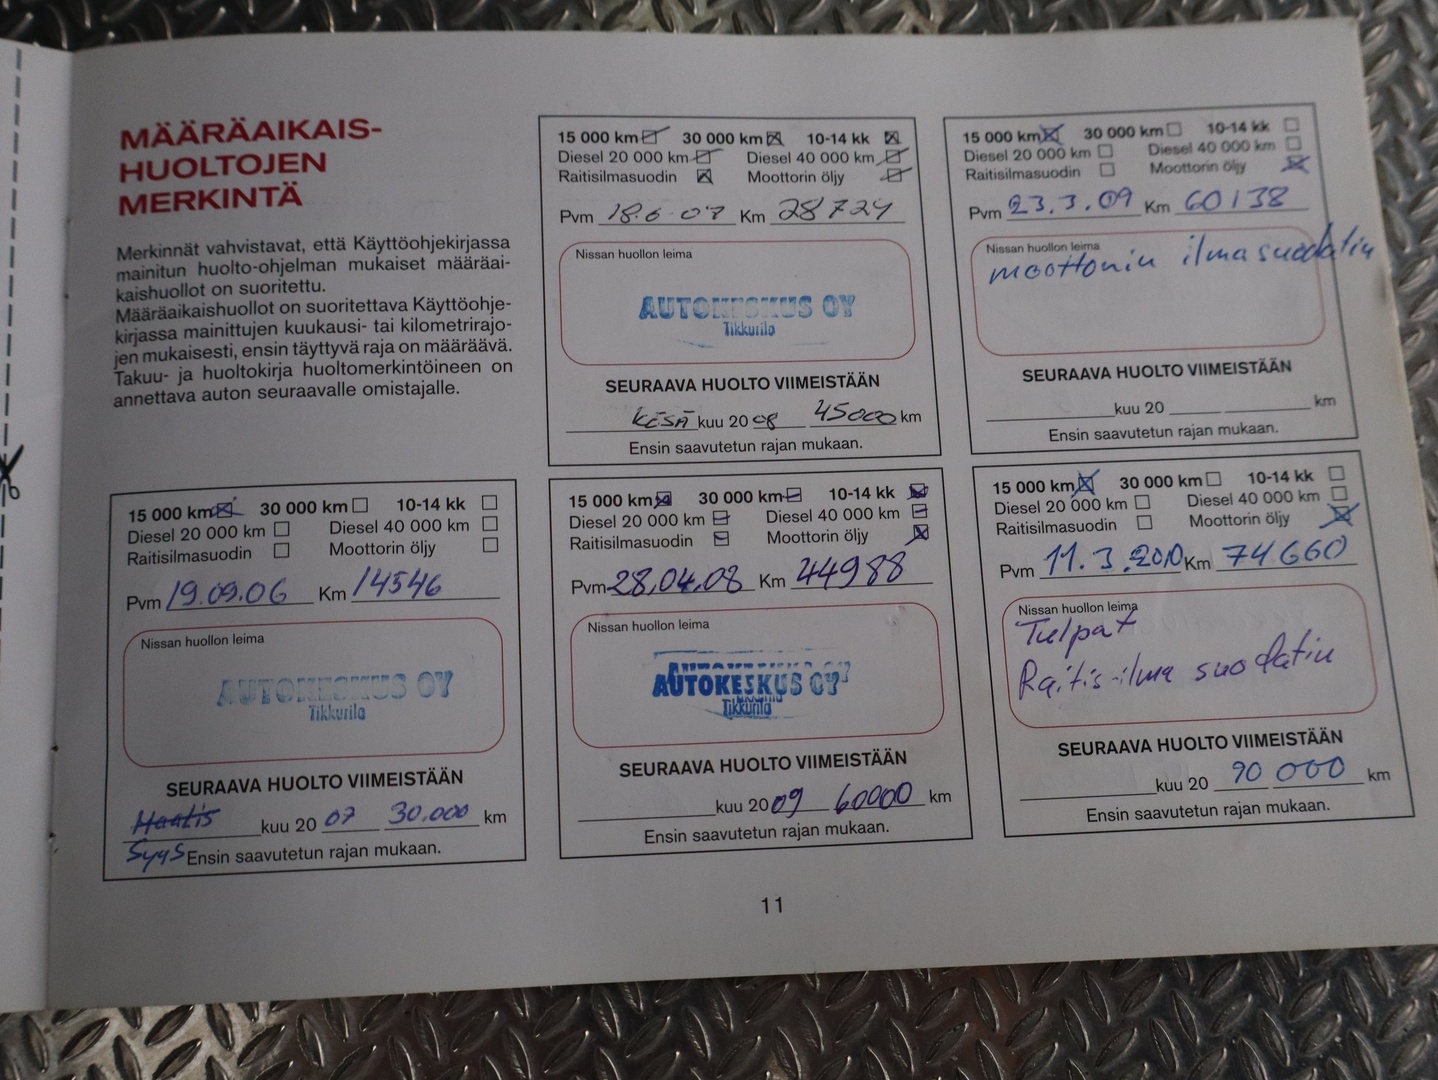 MÄÄRÄAIKAIS-
HUOLTOJEN
MERKINTÄ
Merkinnät vahvistavat, että Käyttöohjekirjassa
mainitun huolto-ohjelman mukaiset määräai-
kaishuollot on suoritettu.
Määräaikaishuollot on suoritettava Käyttöohje-
kirjassa mainittujen kuukausi- tai kilometrirajo-
jen mukaisesti, ensin täyttyvä raja on määräävä.
Takuu- ja huoltokirja huoltomerkintöineen on
annettava auton seuraavalle omistajalle.
15 000 km 30 000 km 10-14 kk
Diesel 20 000 km Diesel 40 000 km
Raitisilmasuodin Moottorin öljy
Pvm 19.09.06 Km 14546
Nissan huollon leima
AUTOKESKUS OY
Tikkurila
SEURAAVA HUOLTO VIIMEISTÄÄN
kuu 20 07 30.000 km
Syys Ensin saavutetun rajan mukaan.
15 000 km 30 000 km 10-14 kk
Diesel 20 000 km Diesel 40 000 km
Raitisilmasuodin Moottorin öljy
Pvm 18.6.07 Km 28724
Nissan huollon leima
AUTOKESKUS OY
Tikkurila
SEURAAVA HUOLTO VIIMEISTÄÄN
KESÄ kuu 20 08 45000 km
Ensin saavutetun rajan mukaan.
15 000 km 30 000 km 10-14 kk
Diesel 20 000 km Diesel 40 000 km
Raitisilmasuodin Moottorin öljy
Pvm 28.04.08 Km 44988
Nissan huollon leima
AUTOKESKUS OY
Tikkurila
SEURAAVA HUOLTO VIIMEISTÄÄN
kuu 20 09 60000 km
Ensin saavutetun rajan mukaan.
15 000 km 30 000 km 10-14 kk
Diesel 20 000 km Diesel 40 000 km
Raitisilmasuodin Moottorin öljy
Pvm 23.3.09 Km 60138
Nissan huollon leima
moottorin ilmasuodatin
SEURAAVA HUOLTO VIIMEISTÄÄN
kuu 20 km
Ensin saavutetun rajan mukaan.
15 000 km 30 000 km 10-14 kk
Diesel 20 000 km Diesel 40 000 km
Raitisilmasuodin Moottorin öljy
Pvm 11.3.2010 Km 74660
Nissan huollon leima
Tulpat
Raitis-ilma suodatin
SEURAAVA HUOLTO VIIMEISTÄÄN
kuu 20 90 000 km
Ensin saavutetun rajan mukaan.
11